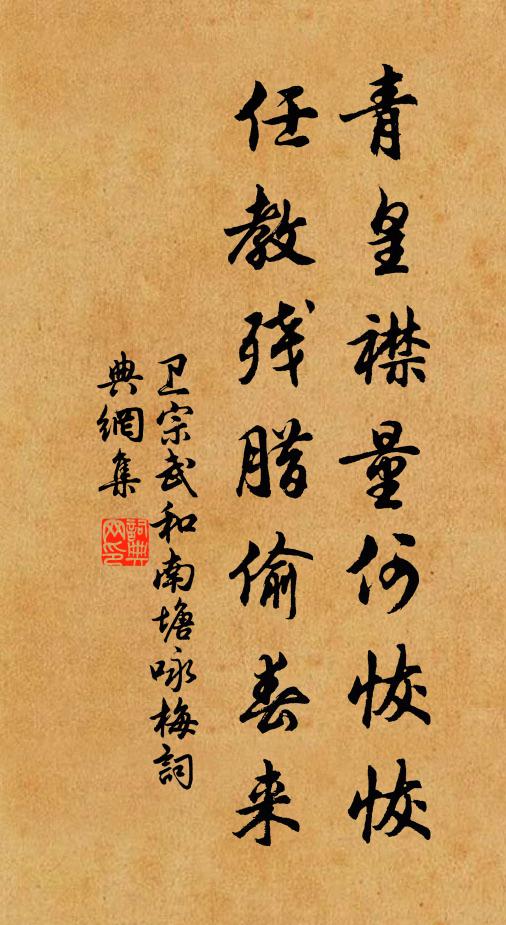 青皇襟量何恢恢
任教残腊偷春来
卫宗武和南塘咏梅詞
典網集
詞典
网印